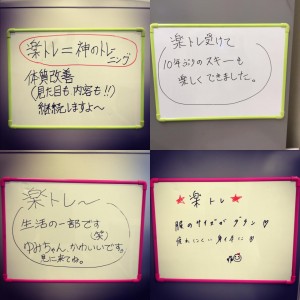 楽トレ=神のトレ
ーニング
体質改善
(見た目も内容も!!)
継続しますよ〜
楽トレ受けて
10年ぶりのスキーも
楽しくできました。
楽トレ〜
生活の一部です
(笑)
ゆみちゃん、かわいいです。
見に来てね。
★楽トレ★
服のサイズがダウン
疲れにくい身体に